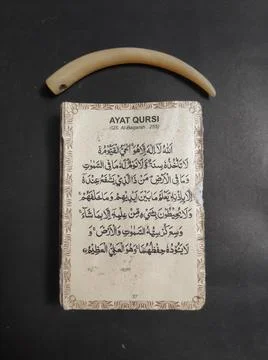 AYAT QURSI
(QS. Al-Baqarah : 255)
اَللهُ لَا اِلٰهَ اِلَّا هُوَ اَلْحَيُّ الْقَيُّوْمُ ەۚ
لَا تَأْخُذُهُ سِنَةٌ وَّلَا نَوْمٌ لَهُ مَا فِى السَّمٰوٰتِ
وَمَا فِى الْاَرْضِ مَنْ ذَا الَّذِيْ يَشْفَعُ عِنْدَهُ
اِلَّا بِاِذْنِهِ يَعْلَمُ مَا بَيْنَ اَيْدِيْهِمْ وَمَا خَلْفَهُمْ
وَلَا يُحِيْطُوْنَ بِشَيْءٍ مِنْ عِلْمِهِ اِلَّا بِمَا شَاءَ
وَسِعَ كُرْسِيُّهُ السَّمٰوٰتِ وَالْاَرْضَ وَ
لَا يَؤُدُهُ حِفْظُهُمَا وَهُوَ الْعَلِيُّ الْعَظِيْمُ
37